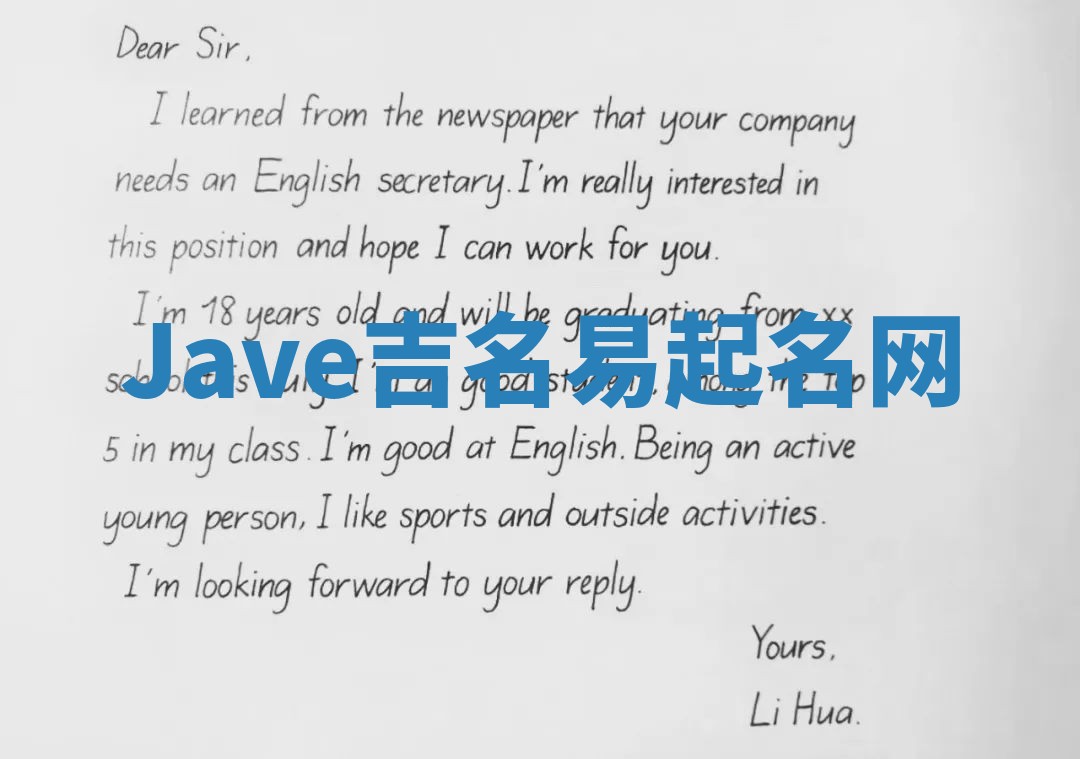 Dear Sir,
I learned from the newspaper that your company
needs an English secretary. I'm really interested in
this position and hope I can work for you.
I'm 18 years old and will be graduating from xx
Jave吉名易起名网
school this July. I'm a good student, among the top
5 in my class. I'm good at English. Being an active
young person, I like sports and outside activities.
I'm looking forward to your reply.
Yours,
Li Hua.